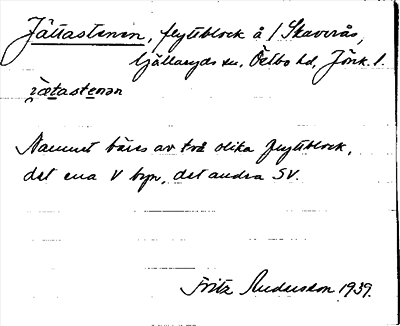 Jättastenen, flyttblock å /Skaverås,
Bjällaryds sn, Östbo hd, Jönk. l.
jætastenən
Namnet bäres av två olika flyttblock,
det ena V byn, det andra SV.
Fritz Andersson 1939.